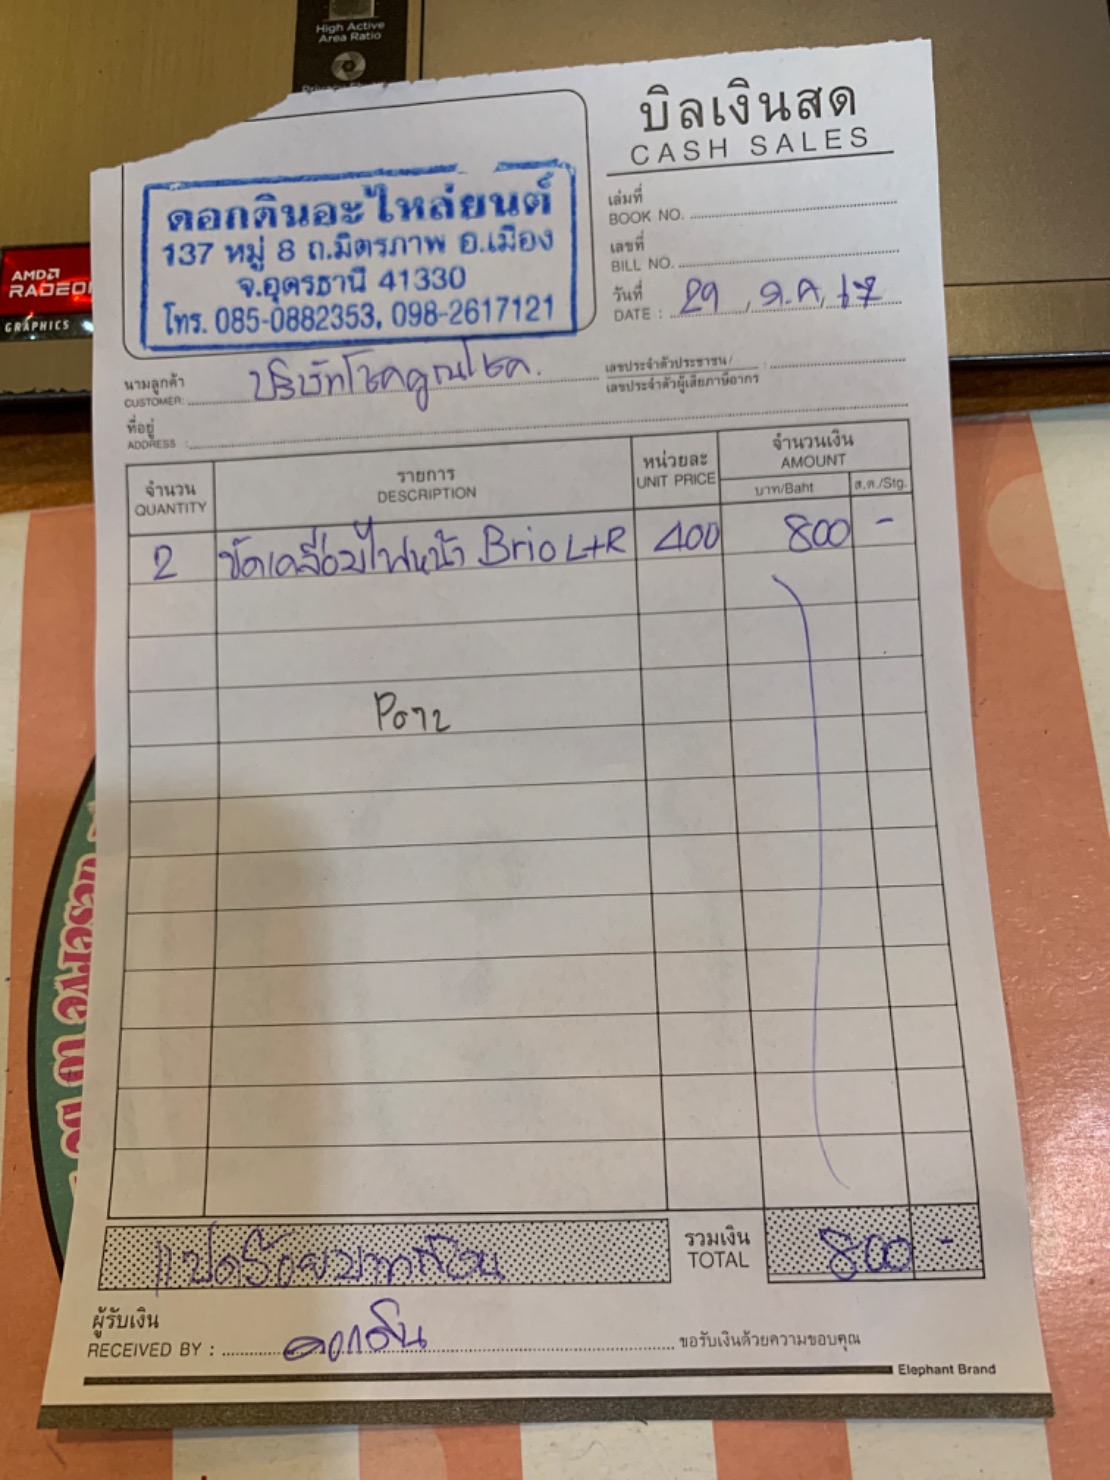 High Active
Area Ratio
AMD
RADEON
GRAPHICS
บิลเงินสด
CASH SALES
ดอกดินอะไหล่ยนต์
137 หมู่ 8 ถ.มิตรภาพ อ.เมือง
จ.อุดรธานี 41330
โทร. 085-0882353, 098-2617121
เล่มที่
BOOK NO.
เลขที่
BILL NO.
วันที่
DATE : 29
นามลูกค้า
CUSTOMER: บริษัทโชคคูณโชค.
เลขประจำตัวประชาชน/ :
เลขประจำตัวผู้เสียภาษีอากร
ที่อยู่
ADDRESS :
จำนวน
QUANTITY
รายการ
DESCRIPTION
หน่วยละ
UNIT PRICE
จำนวนเงิน
AMOUNT
บาท/Baht
ส.ต./Stg.
2 ขัดเคลือบไฟหน้า Brio L+R 400 800 -
แปดร้อยบาทถ้วน
รวมเงิน
TOTAL
800 -
ผู้รับเงิน
RECEIVED BY : ดอกดิน
ขอรับเงินด้วยความขอบคุณ
Elephant Brand
deserve to be